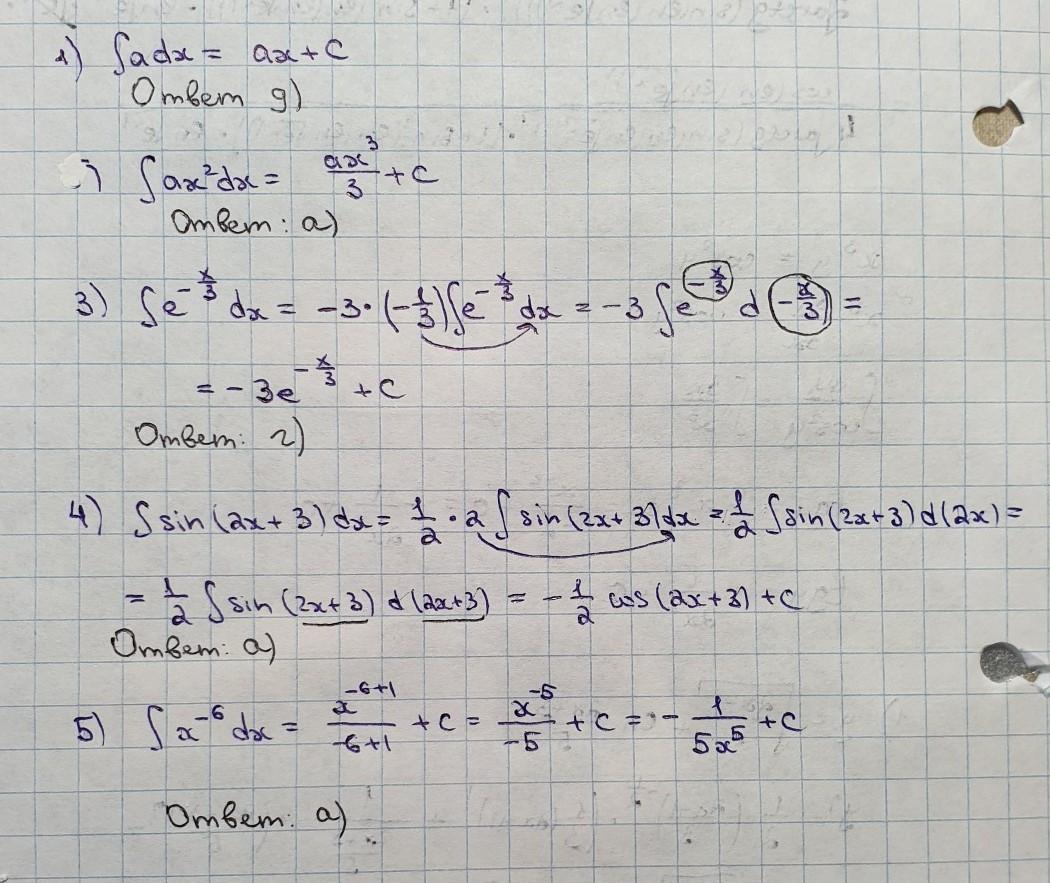 1) ∫adx = ax + C
Ответ g)
) ∫ax²dx = ax³/3 + C
Ответ: а)
3) ∫e^(-x/3) dx = -3·(-1/3)∫e^(-x/3) dx = -3∫e^(-x/3) d(-x/3) =
= -3e^(-x/3) + C
Ответ: г)
4) ∫sin(2x+3)dx = 1/2·2∫sin(2x+3)dx = 1/2∫sin(2x+3)d(2x) =
= 1/2∫sin(2x+3) d(2x+3) = -1/2 cos(2x+3) + C
Ответ: а)
5) ∫x⁻⁶dx = x^(-6+1)/(-6+1) + C = x⁻⁵/(-5) + C = -1/(5x⁵) + C
Ответ: а)